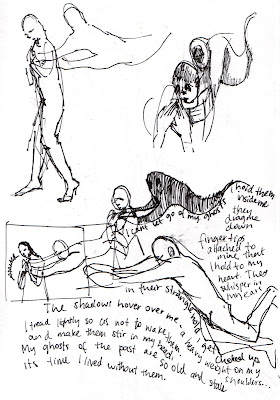 I hold them
inside me
I can't let go of my ghosts
they
drag me
down
fingertips
attached to
mine that
I hold to my
heart. They
whisper in
my ears
in their stranglehold gets
choked up
The shadows hover over me - a heavy weight on my
shoulders...
I tread lightly so as not to wake them
and make them stir in my head.
My ghosts of the past are so old and stale
it's time I lived without them.